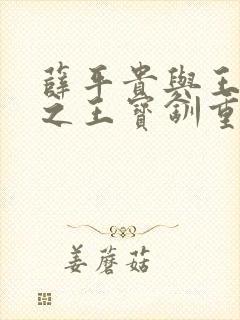 薛平貴與王
之王寶釧重
姜蘑菇